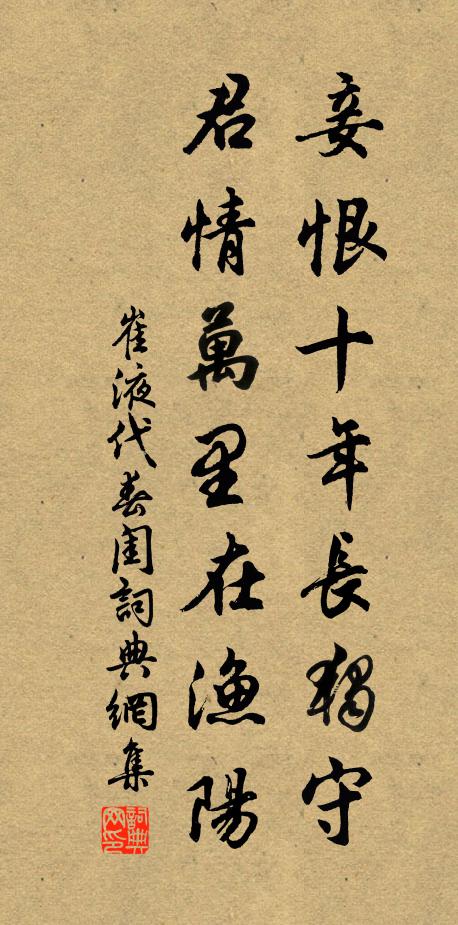 妾恨十年長獨守
君情萬里在漁陽
崔液代春閨詞典網集
詞典网印